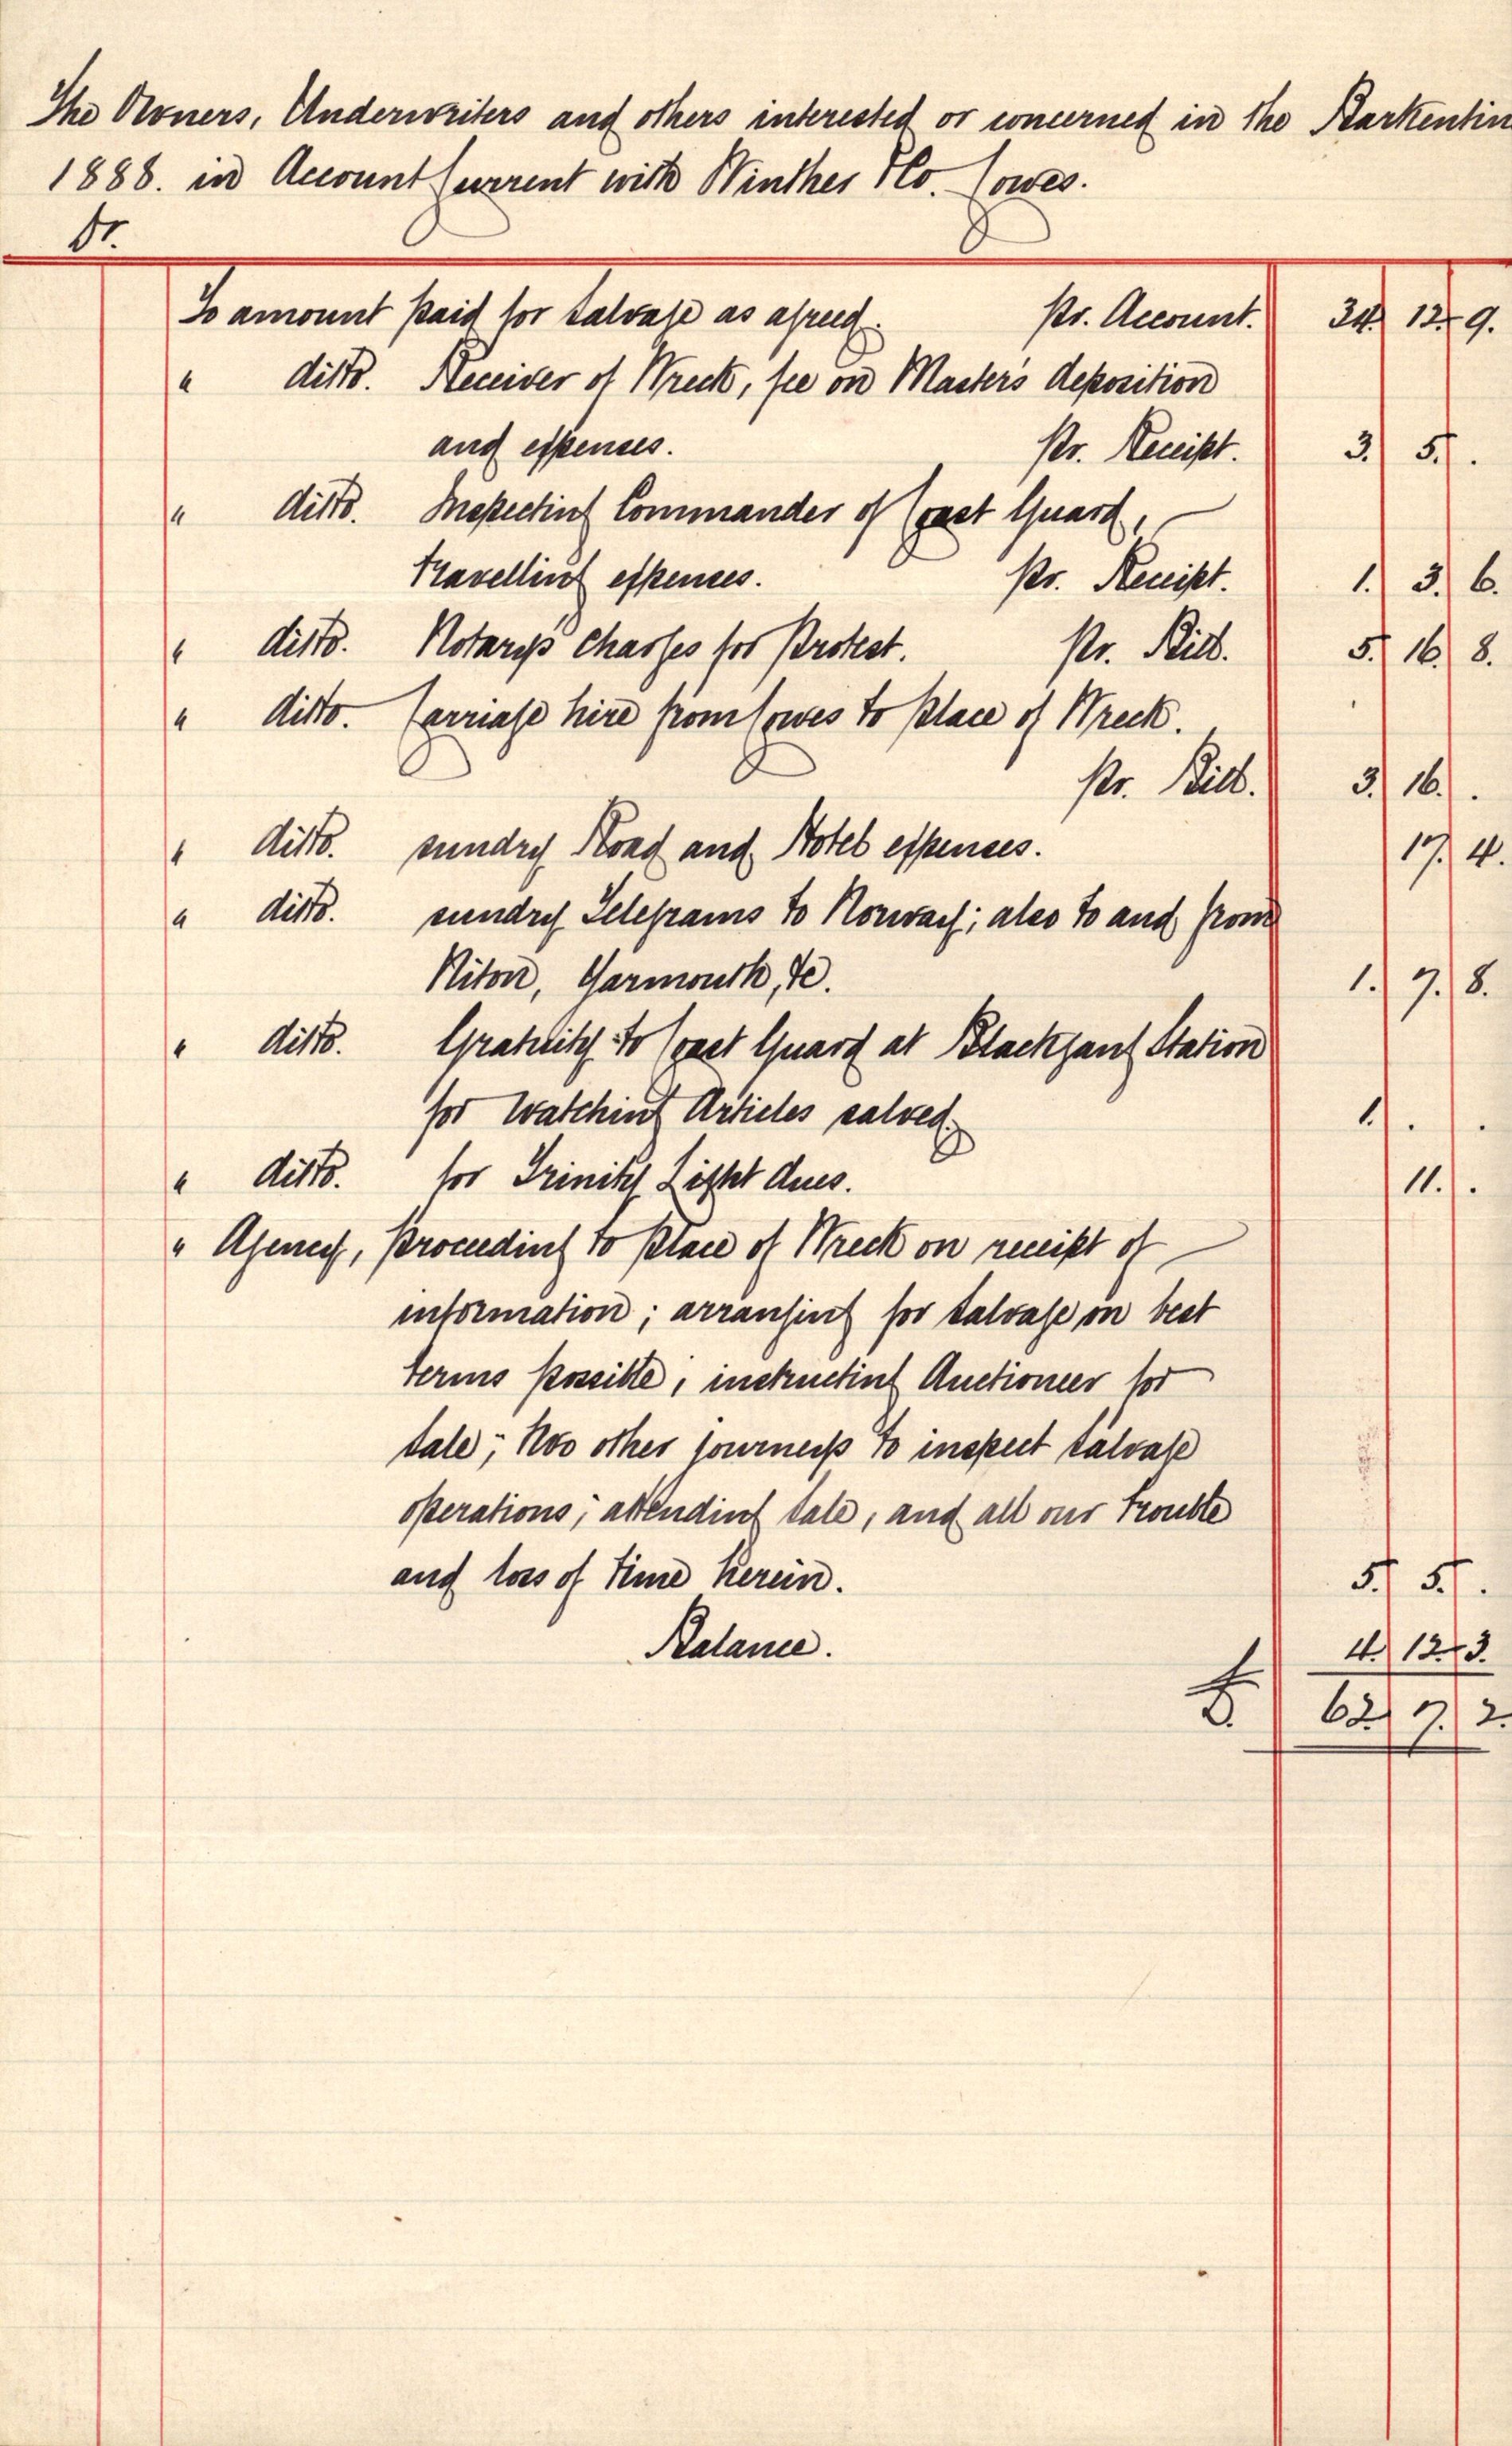 The Owners, Underwriters and others interested or concerned in the Barkentin
1888. in Account Current with Winther & Co. Cowes.
Dr.
To amount paid for Salvage as agreed. pr. Account. 34. 12. 9.
" ditto. Receiver of Wreck, fee on Master's deposition
and expenses. pr. Receipt. 3. 5. .
" ditto. Inspecting Commander of Coast Guard,
travelling expenses. pr. Receipt. 1. 3. 6.
" ditto. Notary's charges for Protest. pr. Bill. 5. 16. 8.
" ditto. Carriage hire from Cowes to place of Wreck.
pr. Bill. 3. 16. .
" ditto. sundry Road and Hotel expenses. 17. 4.
" ditto. sundry Telegrams to Norway; also to and from
Niton, Yarmouth, &c. 1. 7. 8.
" ditto. Gratuity to Coast Guard at Blackgang Station
for watching Articles salved. 1. . .
" ditto. for Trinity Light dues. 11. .
" Agency, proceeding to place of Wreck on receipt of
information; arranging for salvage on best
terms possible; instructing Auctioneer for
sale; two other journeys to inspect salvage
operations; attending sale, and all our trouble
and loss of time herein. 5. 5. .
Balance. 4. 12. 3.
£. 62. 7. 2.